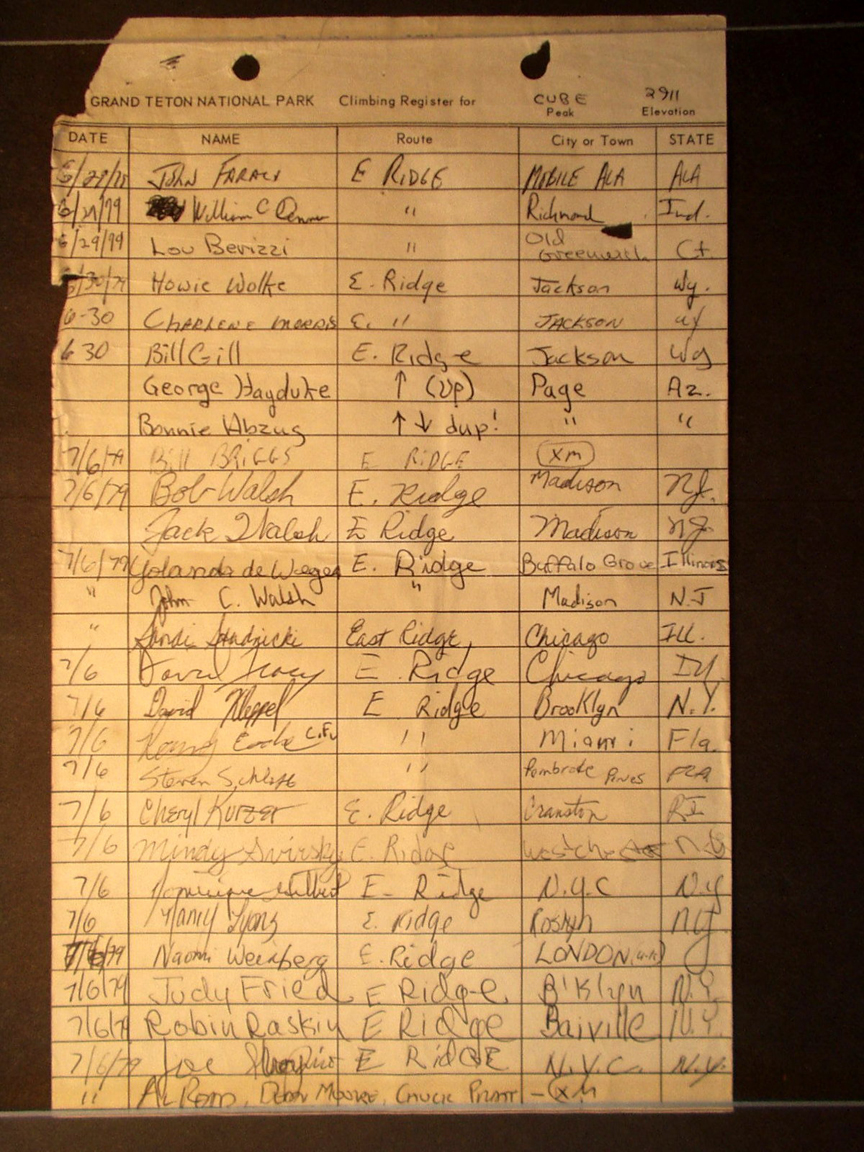 GRAND TETON NATIONAL PARK Climbing Register for CUBE 2911
Peak Elevation
DATE NAME Route City or Town STATE
JOHN E RIDGE MOBILE ALA ALA
6/29/79 William C " Richmond Ind.
6/29/79 Lou Berizzi " Old Greenwich Ct.
6/30/79 Howie Wolke E. Ridge Jackson Wy.
6-30 CHARLENE MORRIS E. " JACKSON WY
6 30 Bill Gill E. Ridge Jackson Wy
George Hayduke ↑ (up) Page Az.
Bonnie Abzug ↑ ↓ dup! " "
7/6/79 BILL BRIGGS E RIDGE XM
7/6/79 Bob Walsh E. Ridge Madison N.J.
Jack Walsh E Ridge Madison NJ
7/6/79 Yolanda de E. Ridge Buffalo Grove Illinois
" John C. Walsh " Madison N.J
" East Ridge Chicago ILL.
7/6 David E. Ridge Chicago Ill
7/6 David E Ridge Brooklyn N.Y.
7/6 " Miami Fla.
7/6 Steven " Pembroke Pines FLA
7/6 Cheryl Kurzer E. Ridge Cranston RI
7/6 Mindy Svirsky E. Ridge
7/6 Dominique E- Ridge N.Y.C N.Y
7/6 Nancy Lyons E. Ridge Roslyn NY
7/6/79 Naomi Weinberg E. Ridge LONDON
7/6/79 Judy Fried E Ridge B'klyn N.Y.
7/6/79 Robin Raskin E Ridge N.Y.
7/6/79 Joe E RIDGE N.Y.C. N.Y.
" AL MOORE, CHUCK PRATT - XM